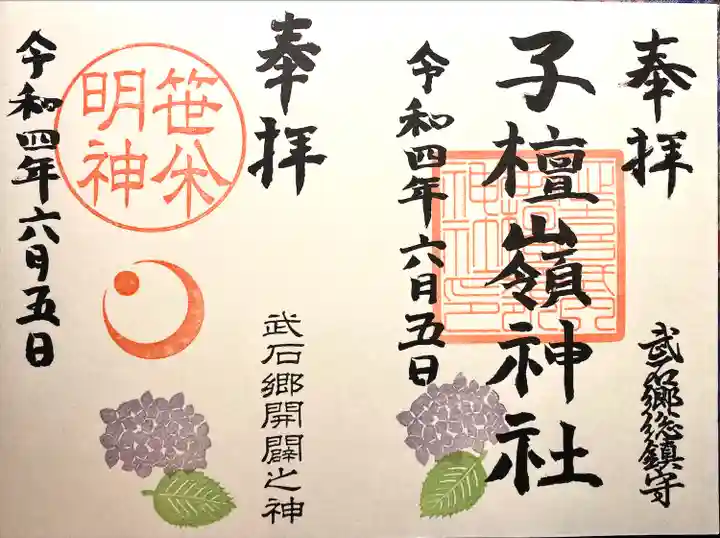 奉拝
武石郷総鎮守
子檀嶺神社
令和四年六月五日
奉拝
武石郷開闢之神
明神
令和四年六月五日